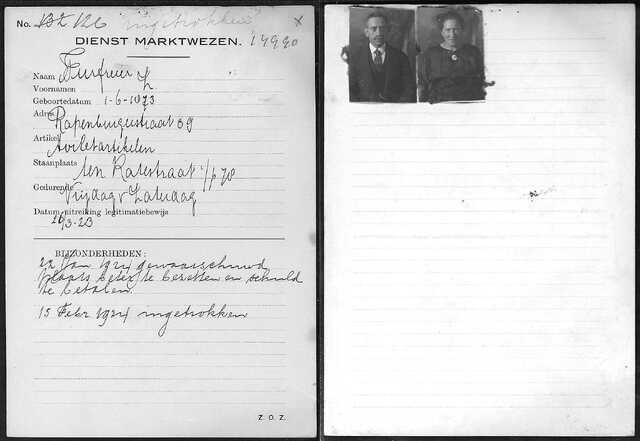 No. 132 126 ingetrokken x
DIENST MARKTWEZEN. 19990
Naam Turfreier
Voornamen L
Geboortedatum 1-6-1873
Adres Rapenburgerstraat 39
Artikel toiletartikelen
Staanplaats ten Katestraat 1/6 78
Gedurende Vrijdag & Zaterdag
Datum uitreiking legitimatiebewijs
3-23
BIJZONDERHEDEN:
22 Jan 1924 gewaarschuwd
plaats beter te bezetten en schuld
te betalen.
15 Febr 1924 ingetrokken
Z. O. Z.